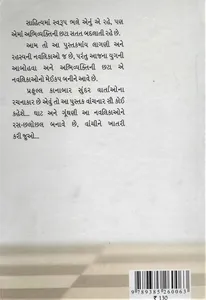 સાહિત્યમાં સ્વરૂપ ભલે એનું એ રહે, પણ
એમાં અભિવ્યક્તિની છટા સતત બદલાતી રહે છે.
આમ તો આ પુસ્તકમાંય લાગણી અને
રહસ્યની નવલિકાઓ જ છે, પરંતુ આજના યુગની
આબોહવા અને અભિવ્યક્તિની છટા એ
નવલિકાઓનો મેઈકપ બનીને આવે છે.
પ્રફુલ્લ કાનાબાર સુંદર વાર્તાઓના
રચનાકાર છે એવું તો આ પુસ્તક વાંચનાર સૌ કોઈ
કહેશે... ઘાટ અને ગૂંથણી આ નવલિકાઓને
રસ-છલોછલ બનાવે છે, વાંચીને ખાતરી
કરી જુઓ...
9789385260063
₹ 130